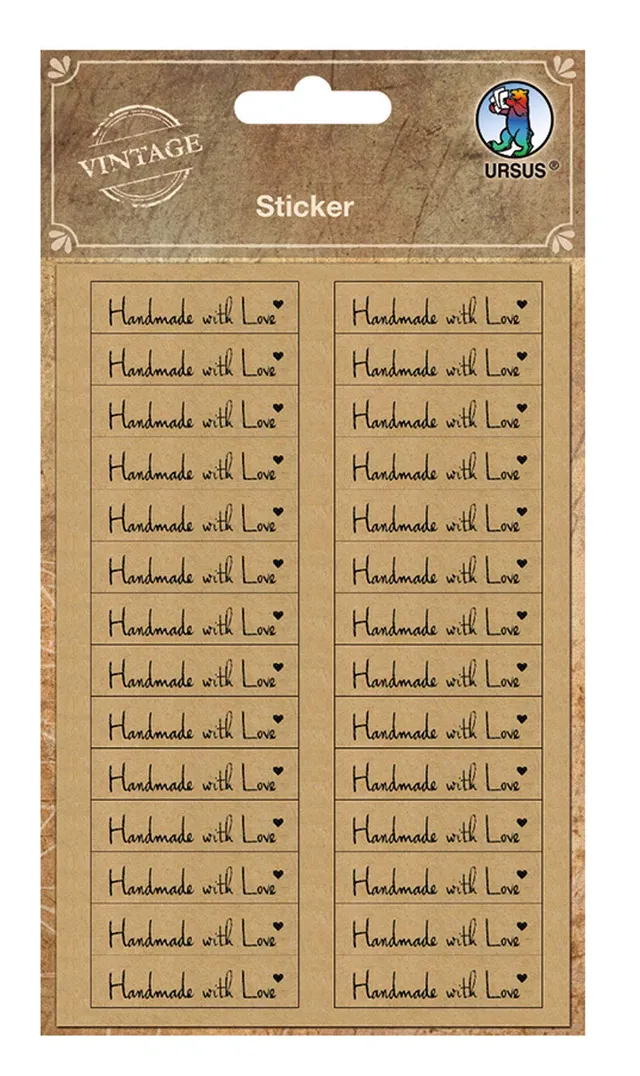 VINTAGE
URSUS®
Sticker
Handmade with Love♥ Handmade with Love♥
Handmade with Love♥ Handmade with Love♥
Handmade with Love♥ Handmade with Love♥
Handmade with Love♥ Handmade with Love♥
Handmade with Love♥ Handmade with Love♥
Handmade with Love♥ Handmade with Love♥
Handmade with Love♥ Handmade with Love♥
Handmade with Love♥ Handmade with Love♥
Handmade with Love♥ Handmade with Love♥
Handmade with Love♥ Handmade with Love♥
Handmade with Love♥ Handmade with Love♥
Handmade with Love♥ Handmade with Love♥
Handmade with Love♥ Handmade with Love♥
Handmade with Love♥ Handmade with Love♥